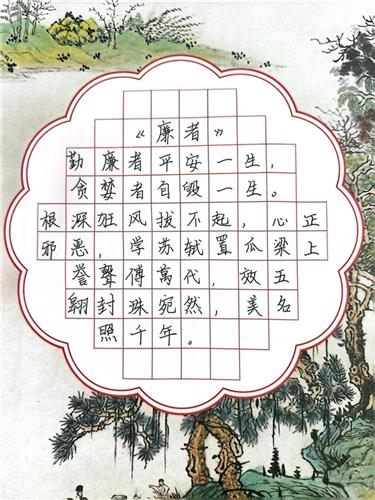 《廉者》
勤廉者平安一生，
贪婪者自毁一生。
根深狂风拔不起，心正
邪恶，学苏轼置瓜梁上
誉聲傳萬代，放五
翱封珠宛然，美名
照千年。